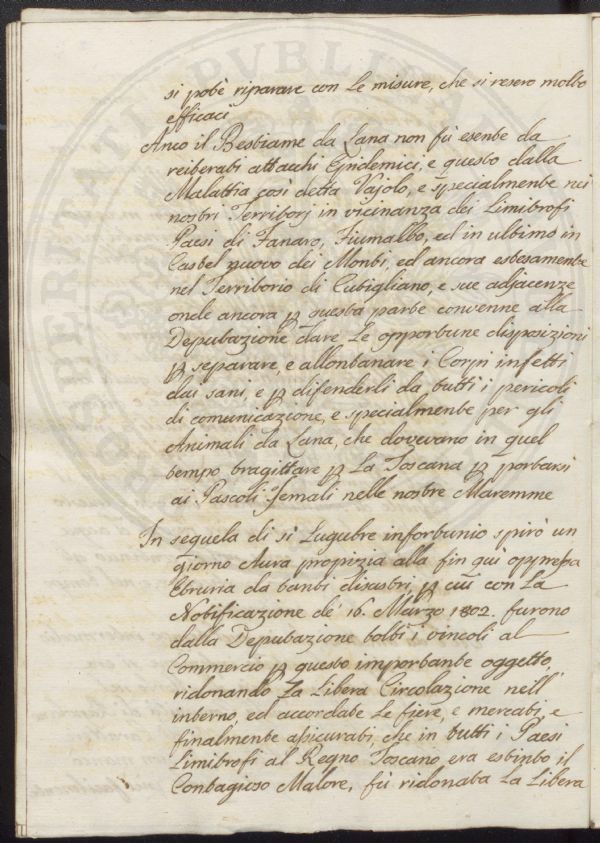 si potè riparare con Le misure, che si resero molto
efficaci
Anco il Bestiame da Lana non fù esente da
reiterati attacchi Epidemici, e questo dalla
Malattia così detta Vajolo, e specialmente nei
nostri Territorj in vicinanza dei Limitrofi
Paesi di Fanano, Fiumalbo, ed in ultimo in
Castel nuovo dei Monti, ed ancora estesamente
nel Territorio di Cutigliano, e sue adjacenze
onde ancora p questa parte convenne alla
Deputazione dare Le opportune disposizioni
p separare, e allontanare i Corpi infetti
dai sani, e p difenderli da tutti i pericoli
di comunicazione, e specialmente per gli
Animali da Lana, che dovevano in quel
tempo tragittare p La Toscana p portarsi
ai Pascoli Jemali nelle nostre Maremme
In sequela di sì Lugubre infortunio spirò un
giorno Aura propizia alla fin quì oppressa
Etruria da tanti disastri, p cui con La
Notificazione de' 16. Marzo 1802. furono
dalla Deputazione tolti i vincoli al
Commercio p questo importante oggetto,
ridonando La Libera Circolazione nell'
interno, ed accordate Le fiere, e mercati, e
finalmente assicurati, che in tutti i Paesi
Limitrofi al Regno Toscano era estinto il
Contagioso Malore, fù ridonata La Libera